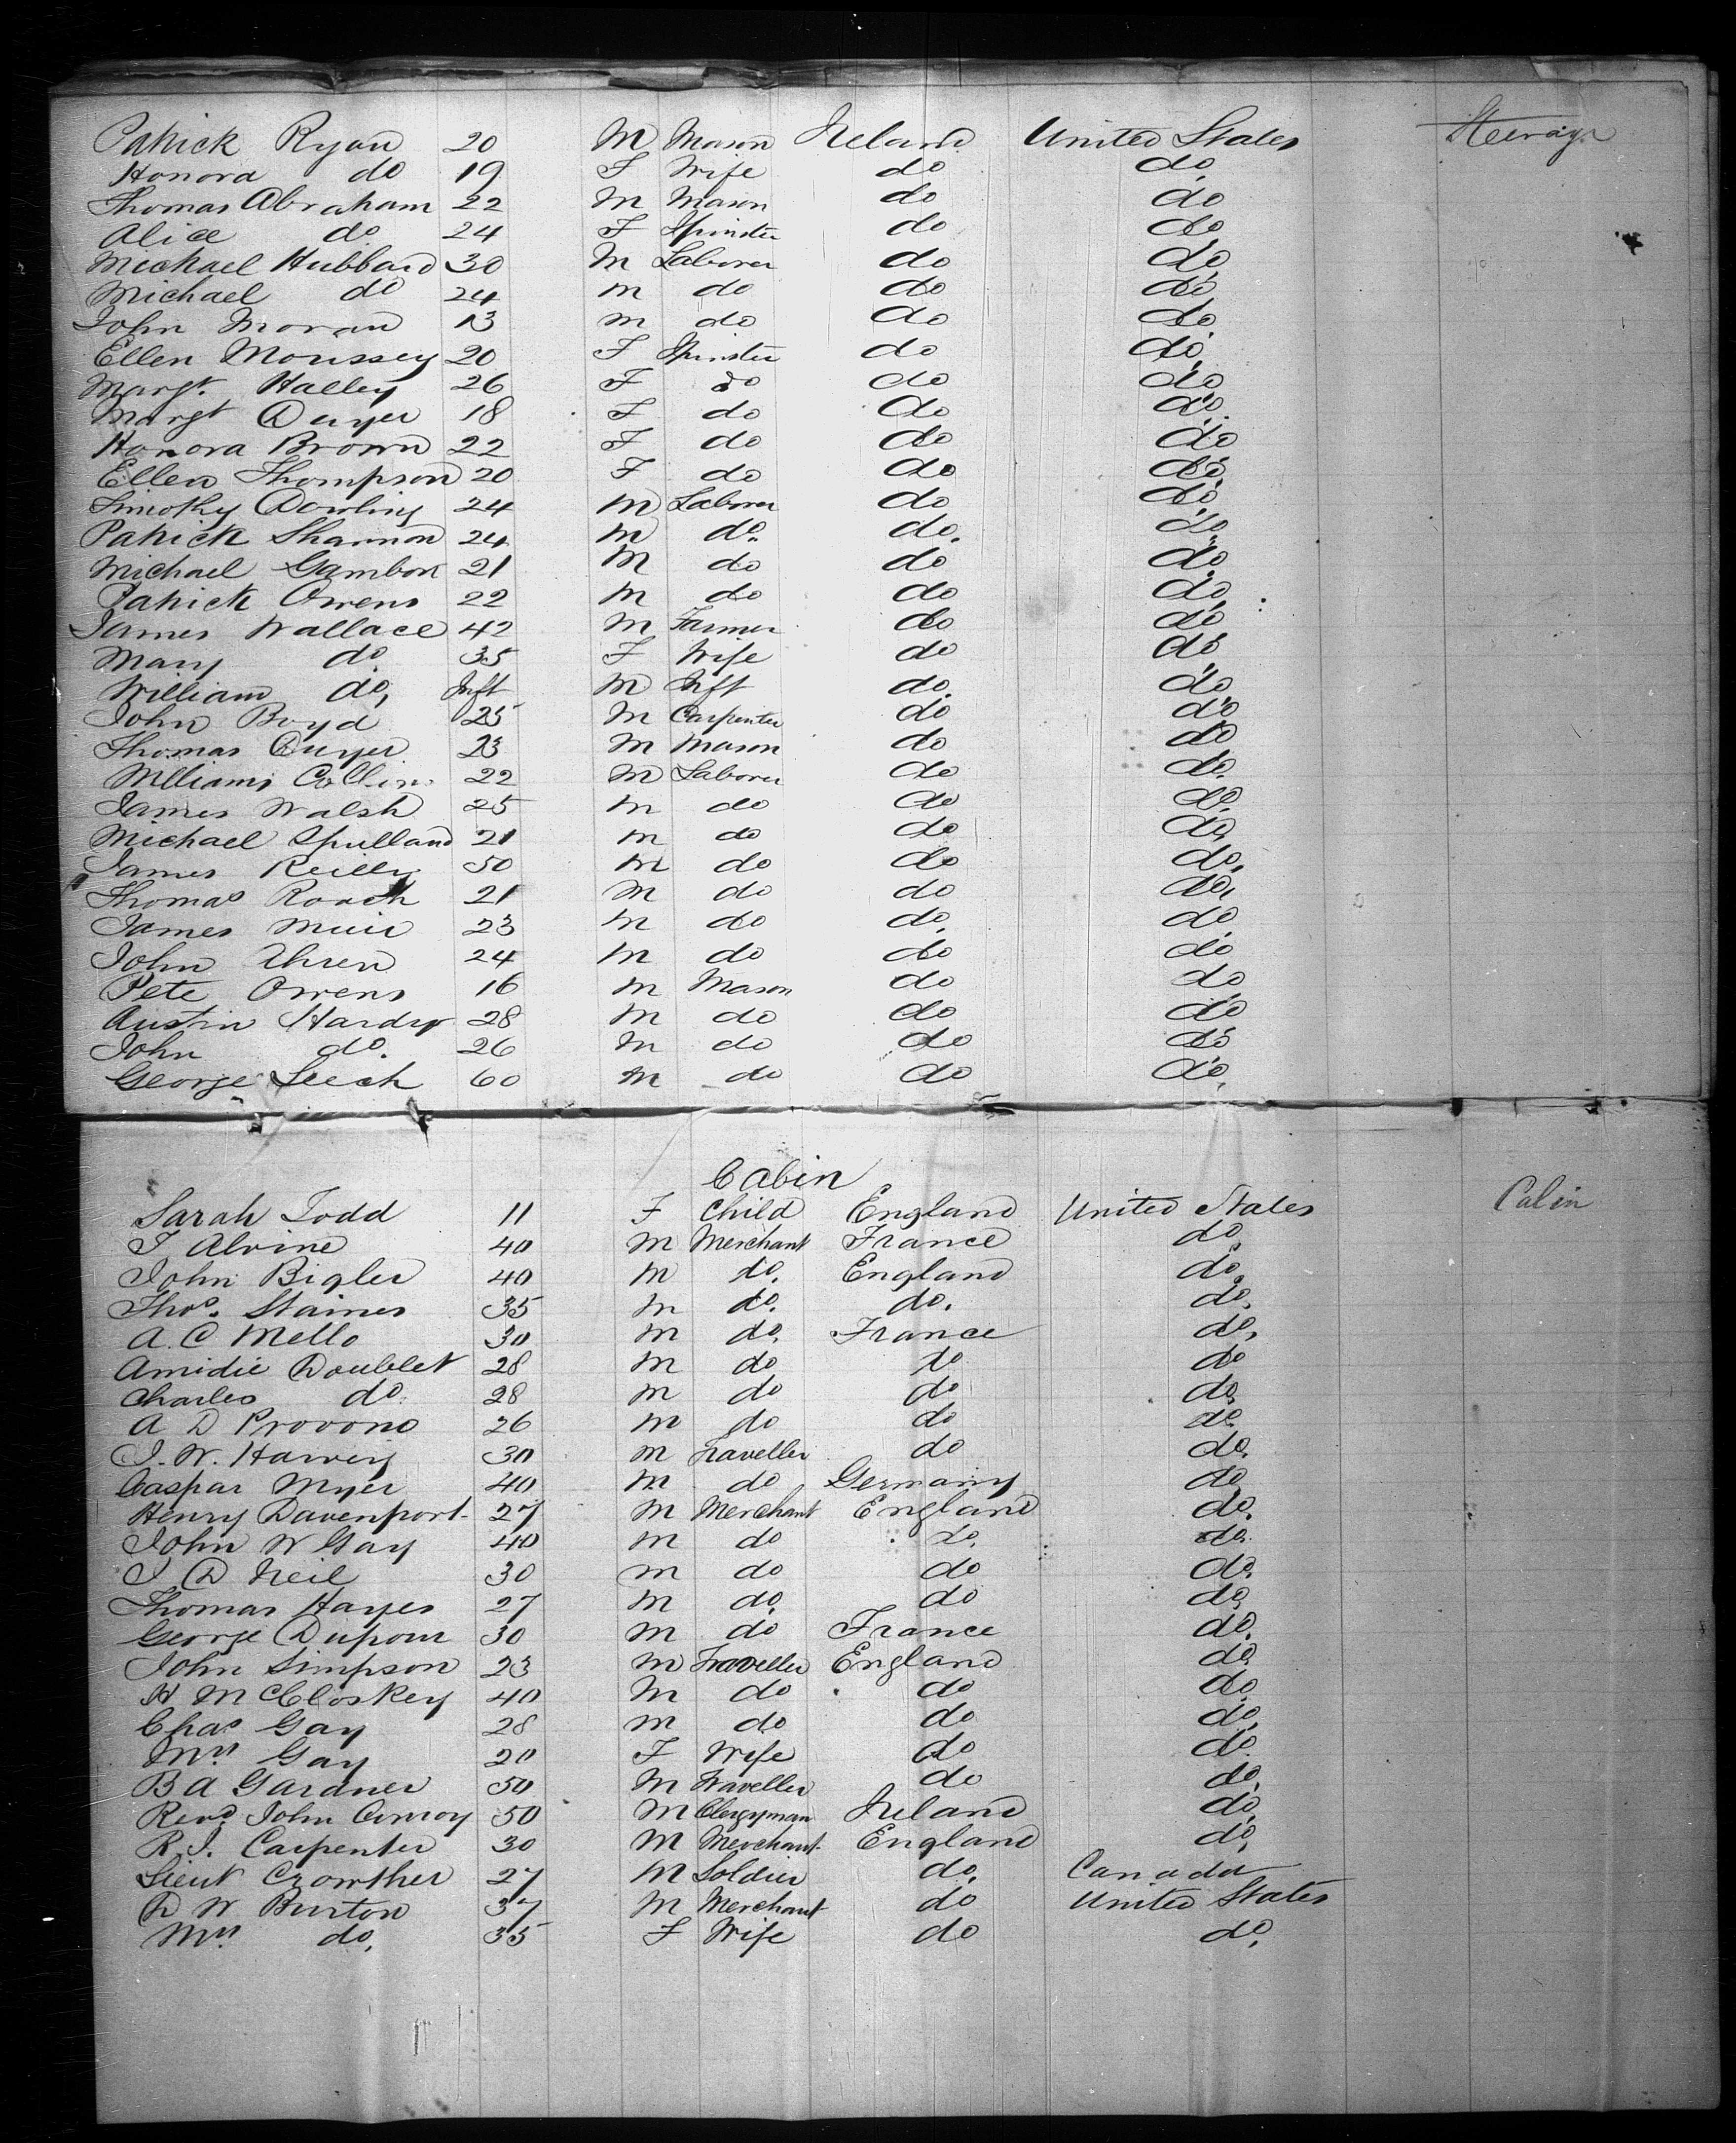 Patrick Ryan 20 M Mason Ireland United States Steerage
Honora do 19 F Wife do do
Thomas Abraham 22 M Mason do do
Alice do 24 F Spinster do do
Michael Hubbard 30 M Laborer do do
Michael do 24 M do do do
John Moran 13 M do do do
Ellen Morissey 20 F Spinster do do
Margt. Halley 26 F do do do
Margt Dwyer 18 F do do do
Honora Brown 22 F do do do
Ellen Thompson 20 F do do do
Timothy Dowling 24 M Laborer do do
Patrick Shannon 24 M do. do. do.
Michael Gambon 21 M do do do
Patrick Owens 22 M do do do
James Wallace 42 M Farmer do do
Mary do. 35 F Wife do do
William do, Inft M Inft do. do
John Boyd 25 M Carpenter do do
Thomas Dwyer 23 M Mason do do
Williams Collins 22 M Laborer do do.
James Walsh 25 M do do do.
Michael Spulland 21 M do do do,
James Reilly 50 M do do do,
Thomas Roach 21 M do do do,
James Muir 23 M do do. do
John Ahren 24 M do do do
Pete Owens 16 M Mason do do
Austin Hardy 28 M do do do
John do. 26 M do do do
George Leech 60 M do do do,
Cabin
Sarah Todd 11 F Child England United States Cabin
J Alvine 40 M Merchant France do
John Bigler 40 M do. England do.
Thos. Staines 35 M do. do. do.
A. C Mello 30 M do. France do,
Amidie Doublet 28 M do do do
Charles do. 28 M do do do,
A D Provono 26 M do do do.
J. W. Harvey 30 M Traveller do do.
Caspar Myer 40 M do Germany do,
Henry Davenport 27 M Merchant England do.
John W Gay 40 M do do. do.
J D Neil 30 M do do do.
Thomas Hayes 27 M do. do do,
George Dupour 30 M do France do.
John Simpson 23 M Traveller England do
H McCloskey 40 M do do do,
Chas Gay 28 M do do do,
Mrs. Gay 20 F Wife do do.
B A Gardner 50 M Traveller do do,
Revd. John Conroy 50 M Clergyman Ireland do,
R. J. Carpenter 30 M Merchant England do,
Lieut Crowther 27 M Soldier do. Canada
D W Burton 37 M Merchant do United States
Mrs. do, 35 F Wife do do,